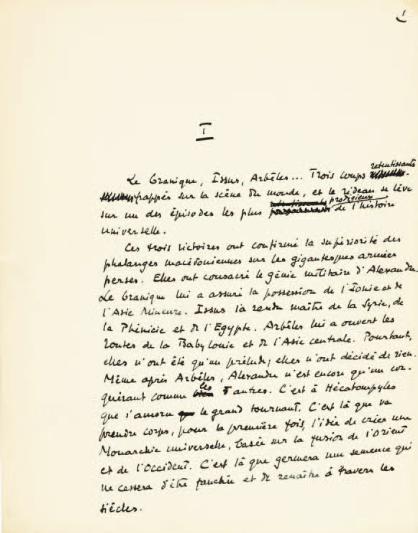 1
I
retentissants
Le Granique, Issus, Arbèles... Trois coups
frappés sur la scène du monde, et le rideau se lève
prodigieux
sur un des épisodes les plus de l'histoire
universelle.
Ces trois victoires ont confirmé la supériorité des
phalanges macédoniennes sur les gigantesques armées
perses. Elles ont consacré le génie militaire d'Alexandre.
Le Granique lui a assuré la possession de l'Ionie et de
l'Asie Mineure. Issus l'a rendu maître de la Syrie, de
la Phénicie et de l'Egypte. Arbèles lui a ouvert les
routes de la Babylonie et de l'Asie centrale. Pourtant,
elles n'ont été qu'un prélude; elles n'ont décidé de rien.
Même après Arbèles, Alexandre n'est encore qu'un con-
quérant comme les autres. C'est à Hécatompyles
que s'amorce le grand tournant. C'est là que va
prendre corps, pour la première fois, l'idée de créer une
Monarchie universelle, basée sur la fusion de l'Orient
et de l'Occident. C'est là que germera une semence qui
ne cessera d'être fauchée et de renaître à travers les
siècles.